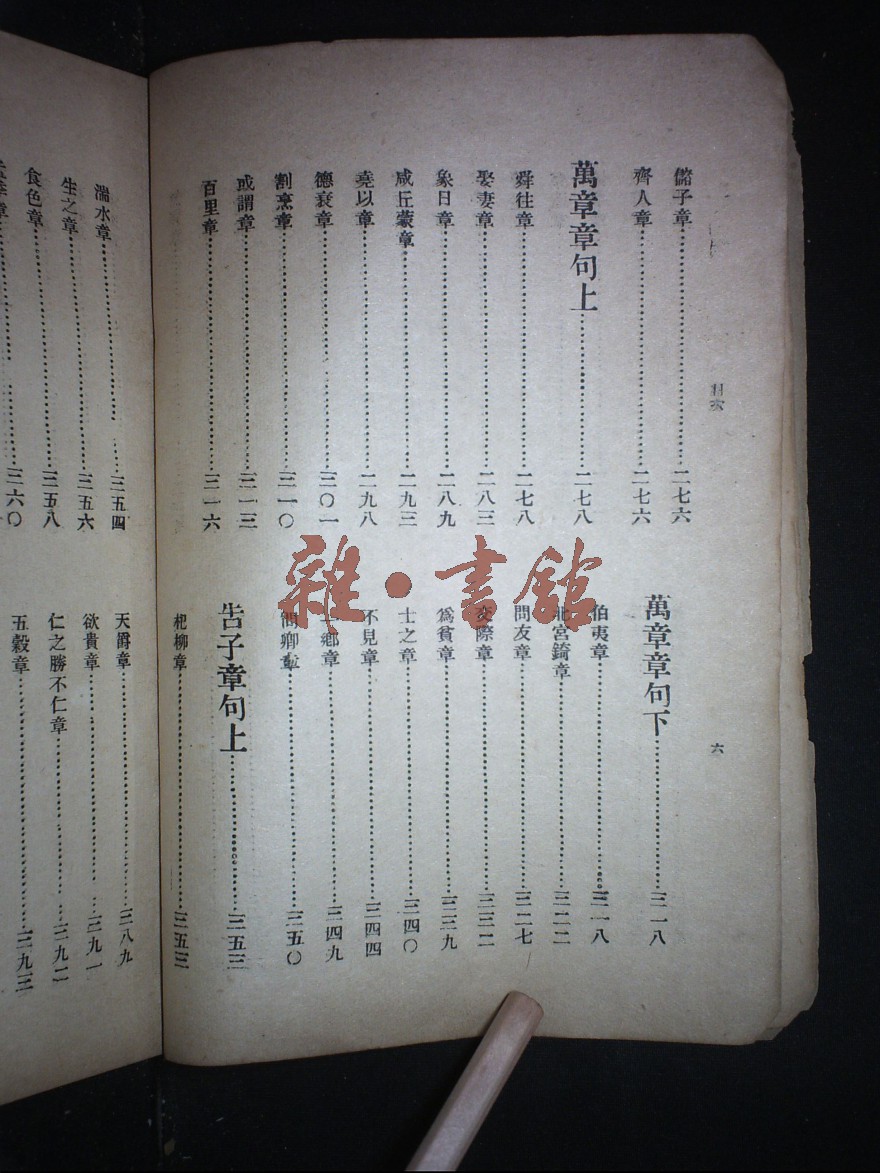 儲子章 二七六
齊人章 二七六
萬章章句上 二七八
舜往章 二七八
娶妻章 二八三
象日章 二八九
咸丘蒙章 二九三
堯以章 二九八
德衰章 三〇一
割烹章 三一〇
或謂章 三一三
百里章 三一六
萬章章句下 三一八
伯夷章 三一八
北宮錡章 三二二
問友章 三二七
交際章 三三二
爲貧章 三三九
士之章 三四〇
不見章 三四四
鄉章 三四九
問卿章 三五〇
告子章句上 三五三
杞柳章 三五三
六
湍水章 三五四
生之章 三五六
食色章 三五八
三六〇
天爵章 三八九
欲貴章 三九一
仁之勝不仁章 三九二
五穀章 三九三
雜·書館